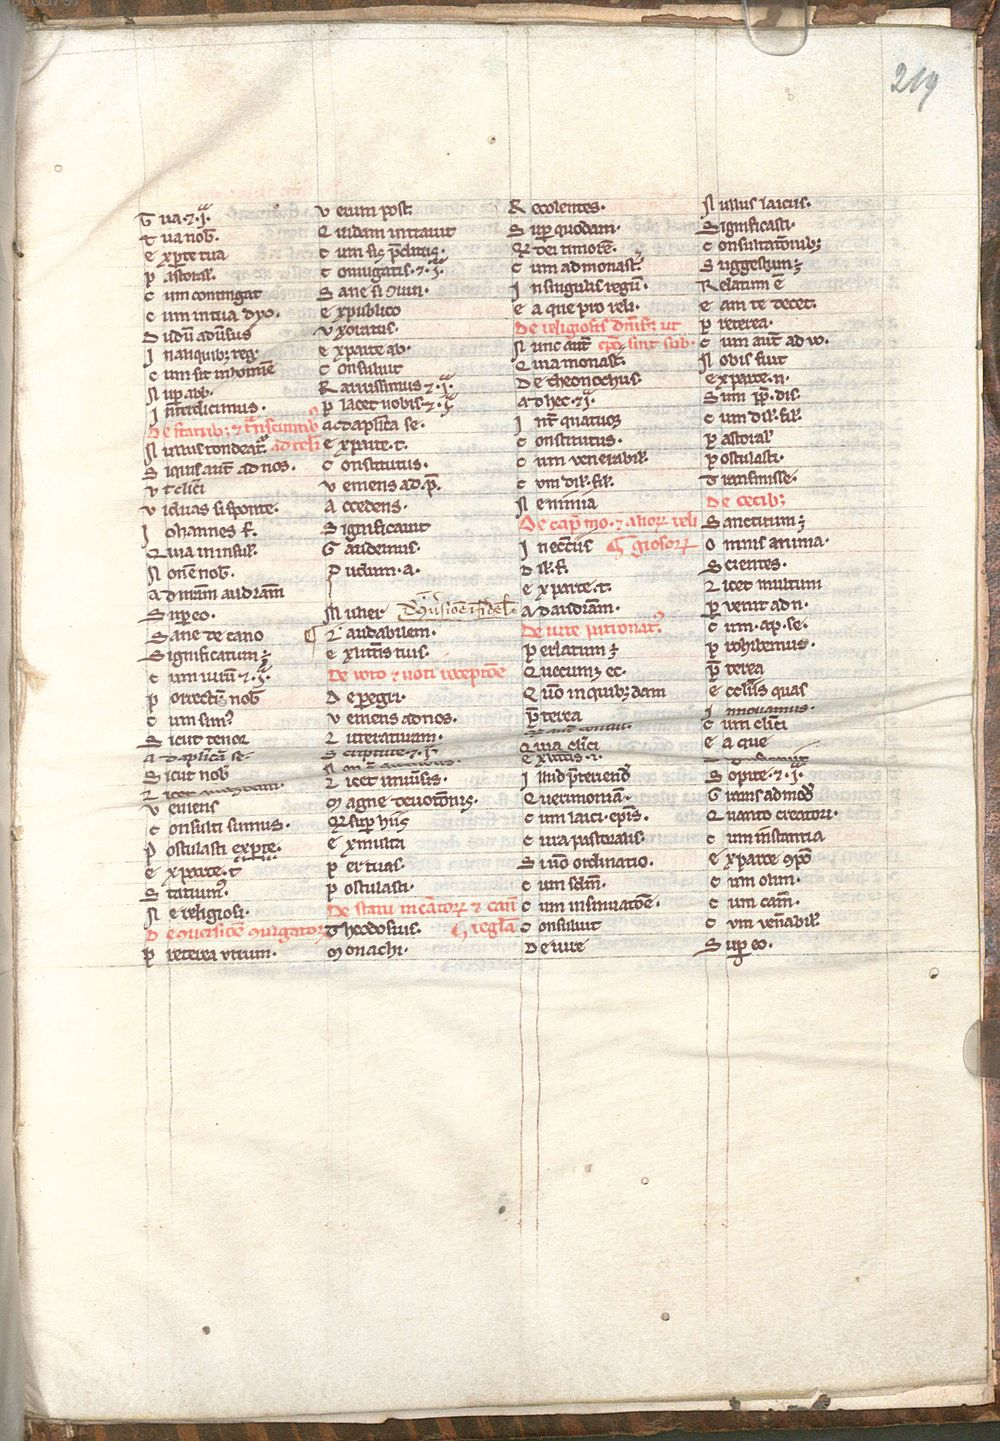 219
G ua. ⁊ .i.
T ua nob̄.
E x p̄te tua
P astoral̄.
C um contingat
C um in tua dyo.
D udū adūsus
I n aliquib; reḡ.
C um sit in hoīnē
N up̄ abb̄.
I nterdicimus.
De statib; ⁊
N ullus tondeat̄ ad reli
S i quis aut̄ ad nos.
V t cl̄ici
V iduas si sponte.
I ohannes f̄.
Q uia in insul̄.
N o nob̄.
A d nr̄am audr̄am
S up̄ eo.
S ane de cano
S ignificatum
C um uirū ⁊ .i.
P orrectū nob̄
C um sim̄
S icut tenor
A d ap̄licā se
S icut nob̄
V eniens
C onsulti sumus.
P ostulasti ex p̄te.
E x parte. t
S tatuim̄.
N e religiosi.
De ouersiōe ɔiugator
P reterea utrum.
V erum post
Q uidam intrauit
C um sis p̄ditus.
C oniugatis. ⁊ .i.
S ane si
E x publico
V xoratus.
E x parte ab.
C onsuluit
K arissimus ⁊ .i.
P lacet nobis ⁊ .i.
A d ap̄lica se.
E x parte. t.
C onstitutus.
V eniens ad. p̄.
A ccedens.
S ignificauit
G audemus.
P udum. a.
M ulier
L audabilem.
E x litt̄is tuis.
De uoto ⁊ uoti redeptōe
D e p̄egr.
V eniens ad nos.
L itteraturam.
S cripture ⁊ .i.
L icet uniūsis.
M agne deuotōnis.
Q sup̄ hiis
E x multa
P er tuas.
P ostulasti.
De statu
T heodosius. regl̄a
M onachi.
R ecolentes.
S up̄ quodam.
Q dei timorē.
C um ad monast̄.
I n singulis regn̄.
E a que pro reli.
De religiosis
N unc aut̄ sint sub.
Q uia monast.
D e theonochus.
A d hec ⁊ .i.
I nt̄ quatuor
C onstitutus.
C um venerabil̄.
C um dil̄. fil̄.
N e nimia
De cap̄ mo. ⁊ alior reli
I n ecc̄iis giosor
D il̄. f̄.
E x parte. t.
A d audr̄am.
De iure patronat̄.
P erlatum
Q uecumq; ec.
Q uō in quib;dam
P̄ terea
Q uia cl̄ici
E x litt̄is. n.
I llud p̄terend
Q uerimoniam
C um laici. ep̄is.
C ura pastoralis.
S i uō ordinatio.
C um sdm̄.
C um insinuatōe.
C onsuluit
D e iure
N ullus laicus.
S ignificasti.
C onsultatōnib;
S uggestum
R elatum ē
E am te decet.
P reterea.
C um aut̄ ad uo.
N obis fuit
E x parte. n.
S um ip̄. dis.
C um dil̄. fil̄.
P astoral̄
P ostulasti.
T ransmisse.
De cēcib;
S anctitum
O mnis anima.
S cientes.
L icet multum
P̄ uenit ad n.
C um. ap̄. se.
P rohibemus.
P̄ terea
E ccl̄iis quas
I nnouamus.
C um cl̄ici
E a que
S opite. ⁊ .i.
G rauis ad mod̄
Q uanto creatori.
C um instantia
E x parte ɔpō
C um olim.
C um cam̄.
C um ven̄abil̄.
S up̄ eo.